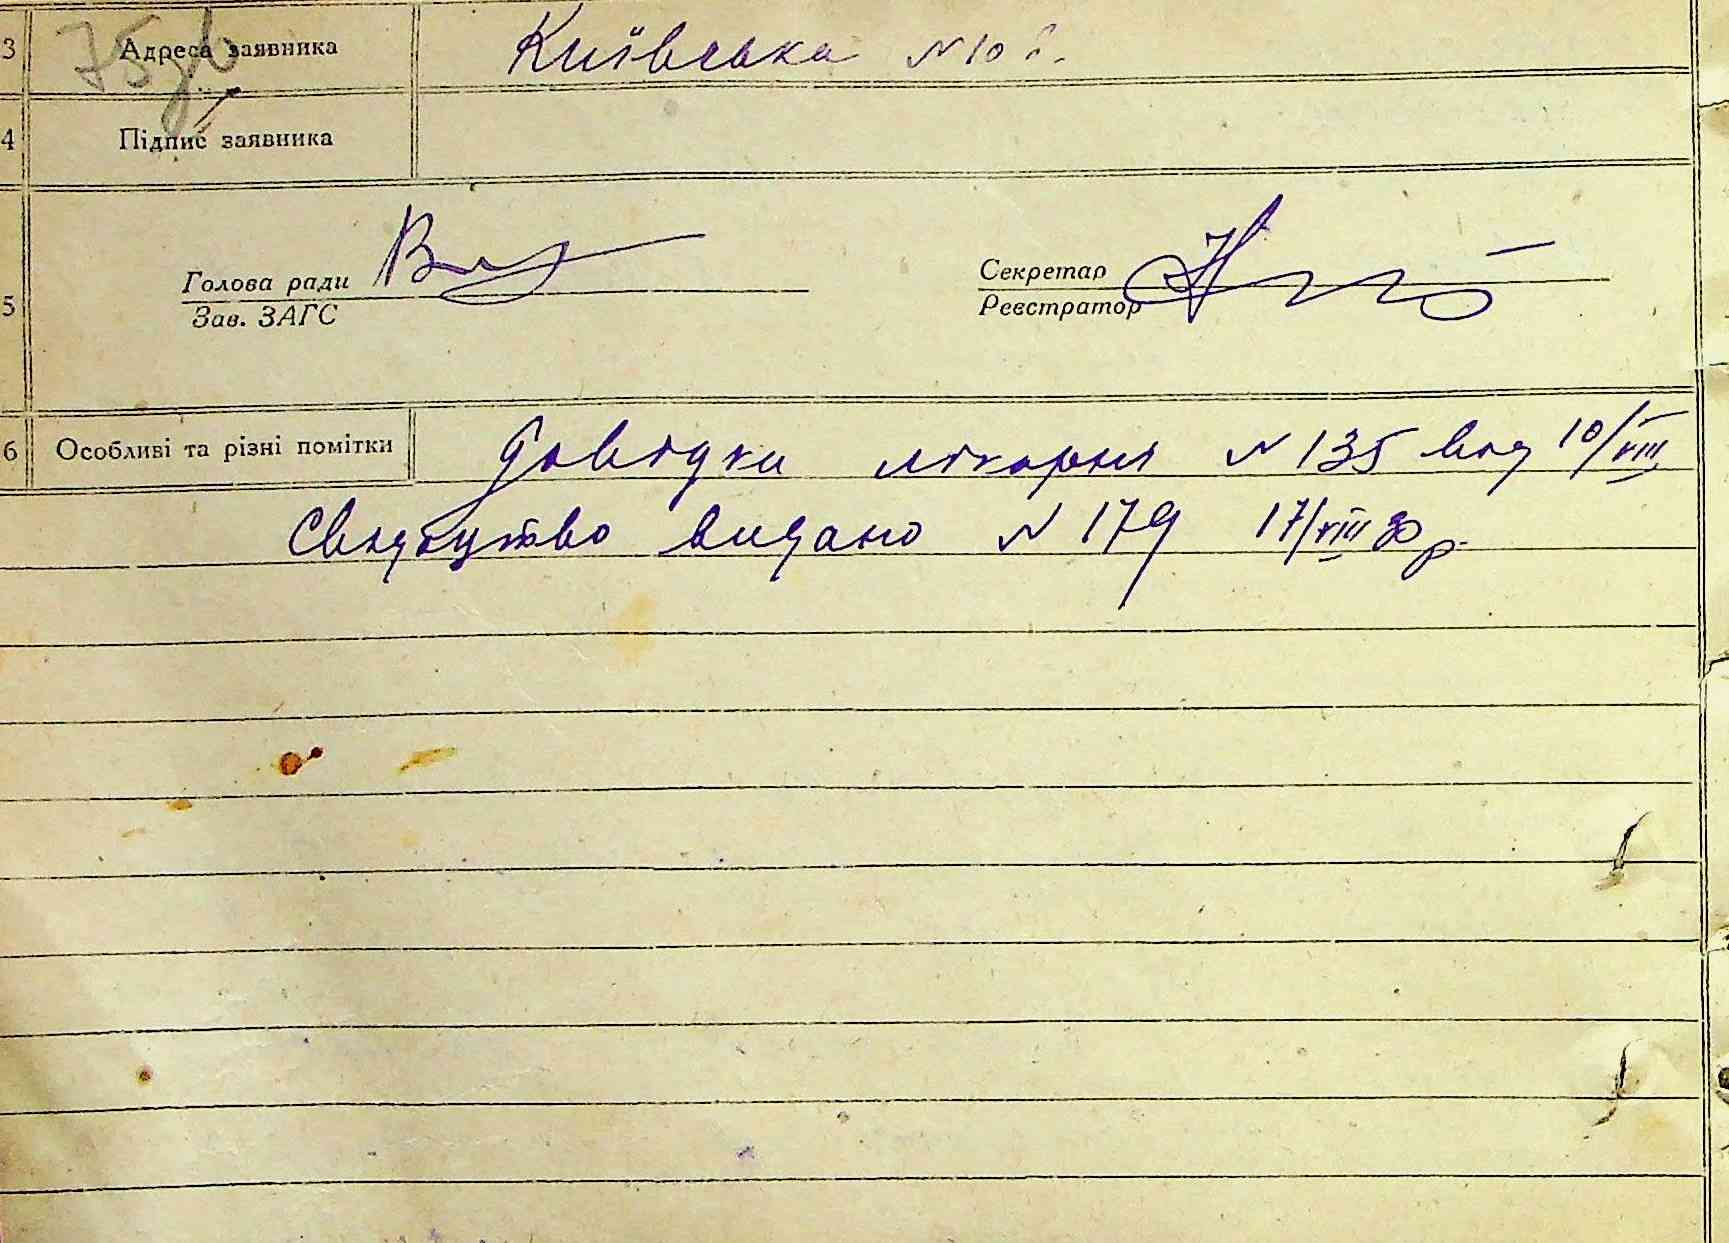 3 Адреса заявника Київська N 10
4 Підпис заявника
5 Голова ради Секретар
Зав. ЗАГС Реєстратор
6 Особливі та різні помітки Довідки лікарня N 135 від 10/VIII
Свидоцтво видано N 179 17/VIII 30 р.